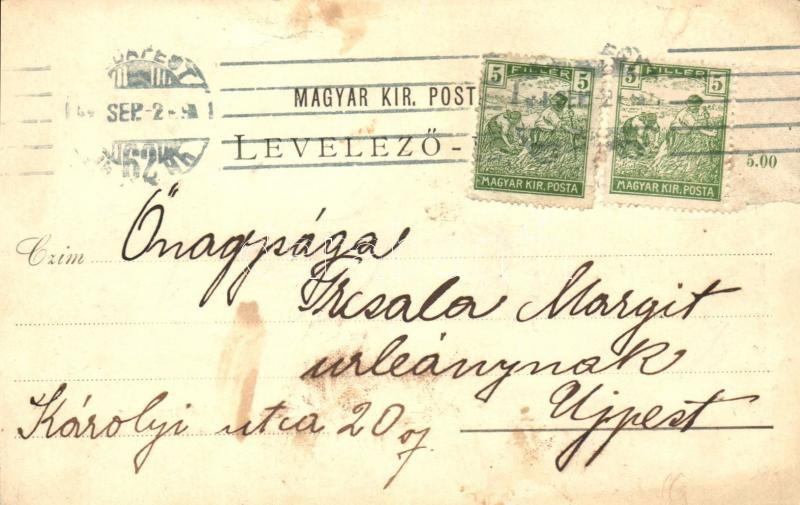 BUDAPEST
SEP.-2
62
MAGYAR KIR. POST
LEVELEZŐ-
5 FILLER 5
MAGYAR KIR. POSTA
5 FILLER 5
MAGYAR KIR. POSTA
5.00
Czim
Őnagysága
Trcsala Margit
urleánynak
Ujpest
Károlyi utca 20